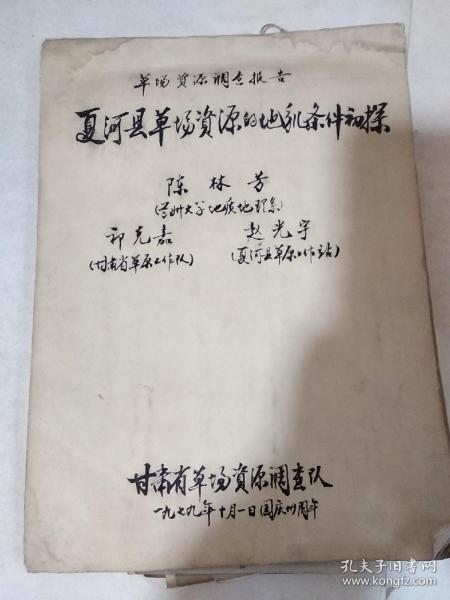 草场资源调查报告
夏河县草场资源的地乳条件初探
陈林芳
(兰州大学地质地理系)
祁克嘉 赵光宇
(甘肃省草原工作队) (夏河县草原工作站)
甘肃省草场資源调查队
一九七九年十月一日国庆卅周年
孔夫子旧书网
www.kongfz.com